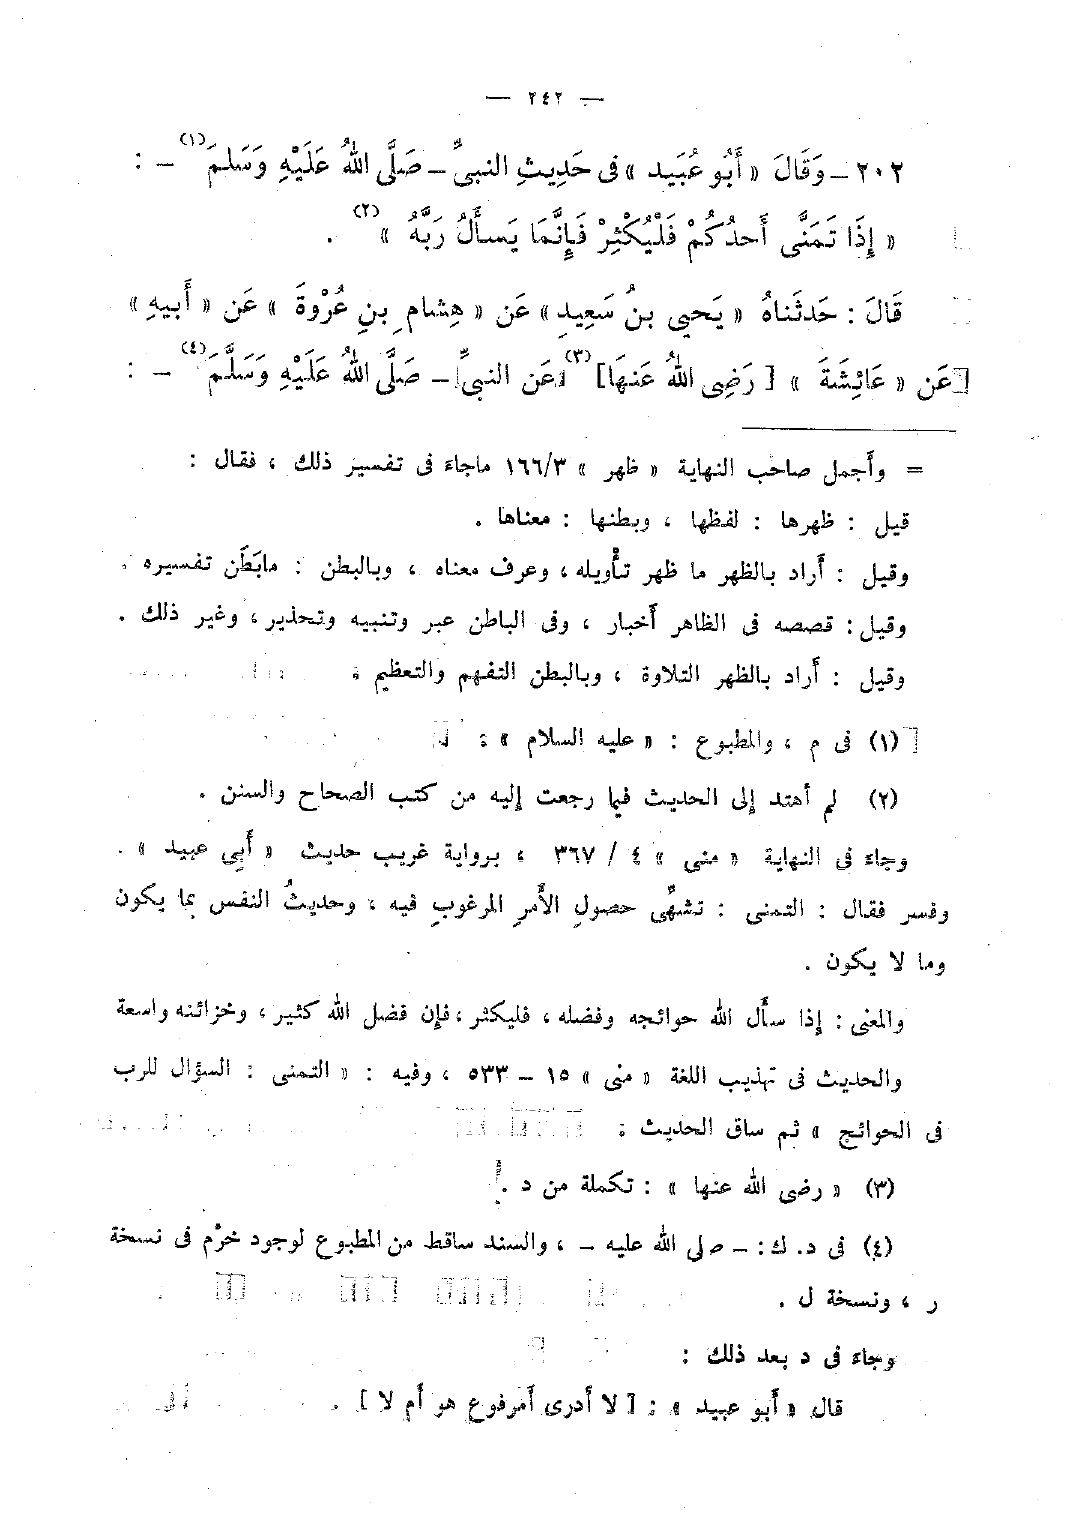 — ٢٤٢ —
٢٠٢ – وَقَالَ « أَبُو عُبَيد » فى حَدِيثِ النبىِّ – صَلَّى اللهُ عَلَيْهِ وَسَلمَ (١) – :
« إِذَا تَمَنَّى أَحدُكُمْ فَلْيُكْثِرْ فَإِنَّمَا يَسأَلُ رَبَّهُ » (٢) .
قَالَ : حَدثَناهُ « يَحيى بنُ سَعِيدِ » عَن « هِشام ِ بنِ عُرْوةَ » عَن « أَبيهِ »
[عَن « عَائِشَةَ » [ رَضِى اللهُ عَنهَا] (٣) عَن النبىِّ – صَلَّى اللهُ عَلَيْهِ وَسَلَّمَ (٤) – :
= وأَجمل صاحب النهاية « ظهر » ١٦٦/٣ ماجاءَ فى تفسير ذلك ، فقال :
قيل : ظهرها : لفظها ، وبطنها : معناها .
وقيل : أَراد بالظهر ما ظهر تأْويله ، وعرف معناه ، وبالبطن : مابَطَن تفسيره .
وقيل : قصصه فى الظاهر أَخبار ، وفى الباطن عبر وتنبيه وتحذير ، وغير ذلك .
وقيل : أَراد بالظهر التلاوة ، وبالبطن التفهم والتعظيم .
(١) فى م ، والمطبوع : « عليه السلام » .
(٢) لم أهتد إلى الحديث فيما رجعت إليه من كتب الصحاح والسنن .
وجاءَ فى النهاية « منى » ٤ / ٣٦٧ ، برواية غريب حديث « أَبى عبيد » .
وفسر فقال : التمنى : تشهِّى حصولِ الأَمرِ المرغوبِ فيه ، وحديثُ النفس بما يكون
وما لا يكون .
والمعنى : إذا سأَل الله حوائجه وفضله ، فليكثر ، فإن فضل الله كثير ، وخزائنه واسعة
والحديث فى تهذيب اللغة « منى » ١٥ – ٥٣٣ ، وفيه : « التمنى : السؤال للرب
فى الحوائج » ثم ساق الحديث :
(٣) « رضى الله عنها » : تكملة من د .
(٤) فى د. ك : – صلى الله عليه – ، والسند ساقط من المطبوع لوجود خرْم فى نسخة
ر ، ونسخة ل .
وجاءَ فى د بعد ذلك :
قال « أَبو عبيد » : [ لا أَدرى أَمرفوع هو أَم لا ] .